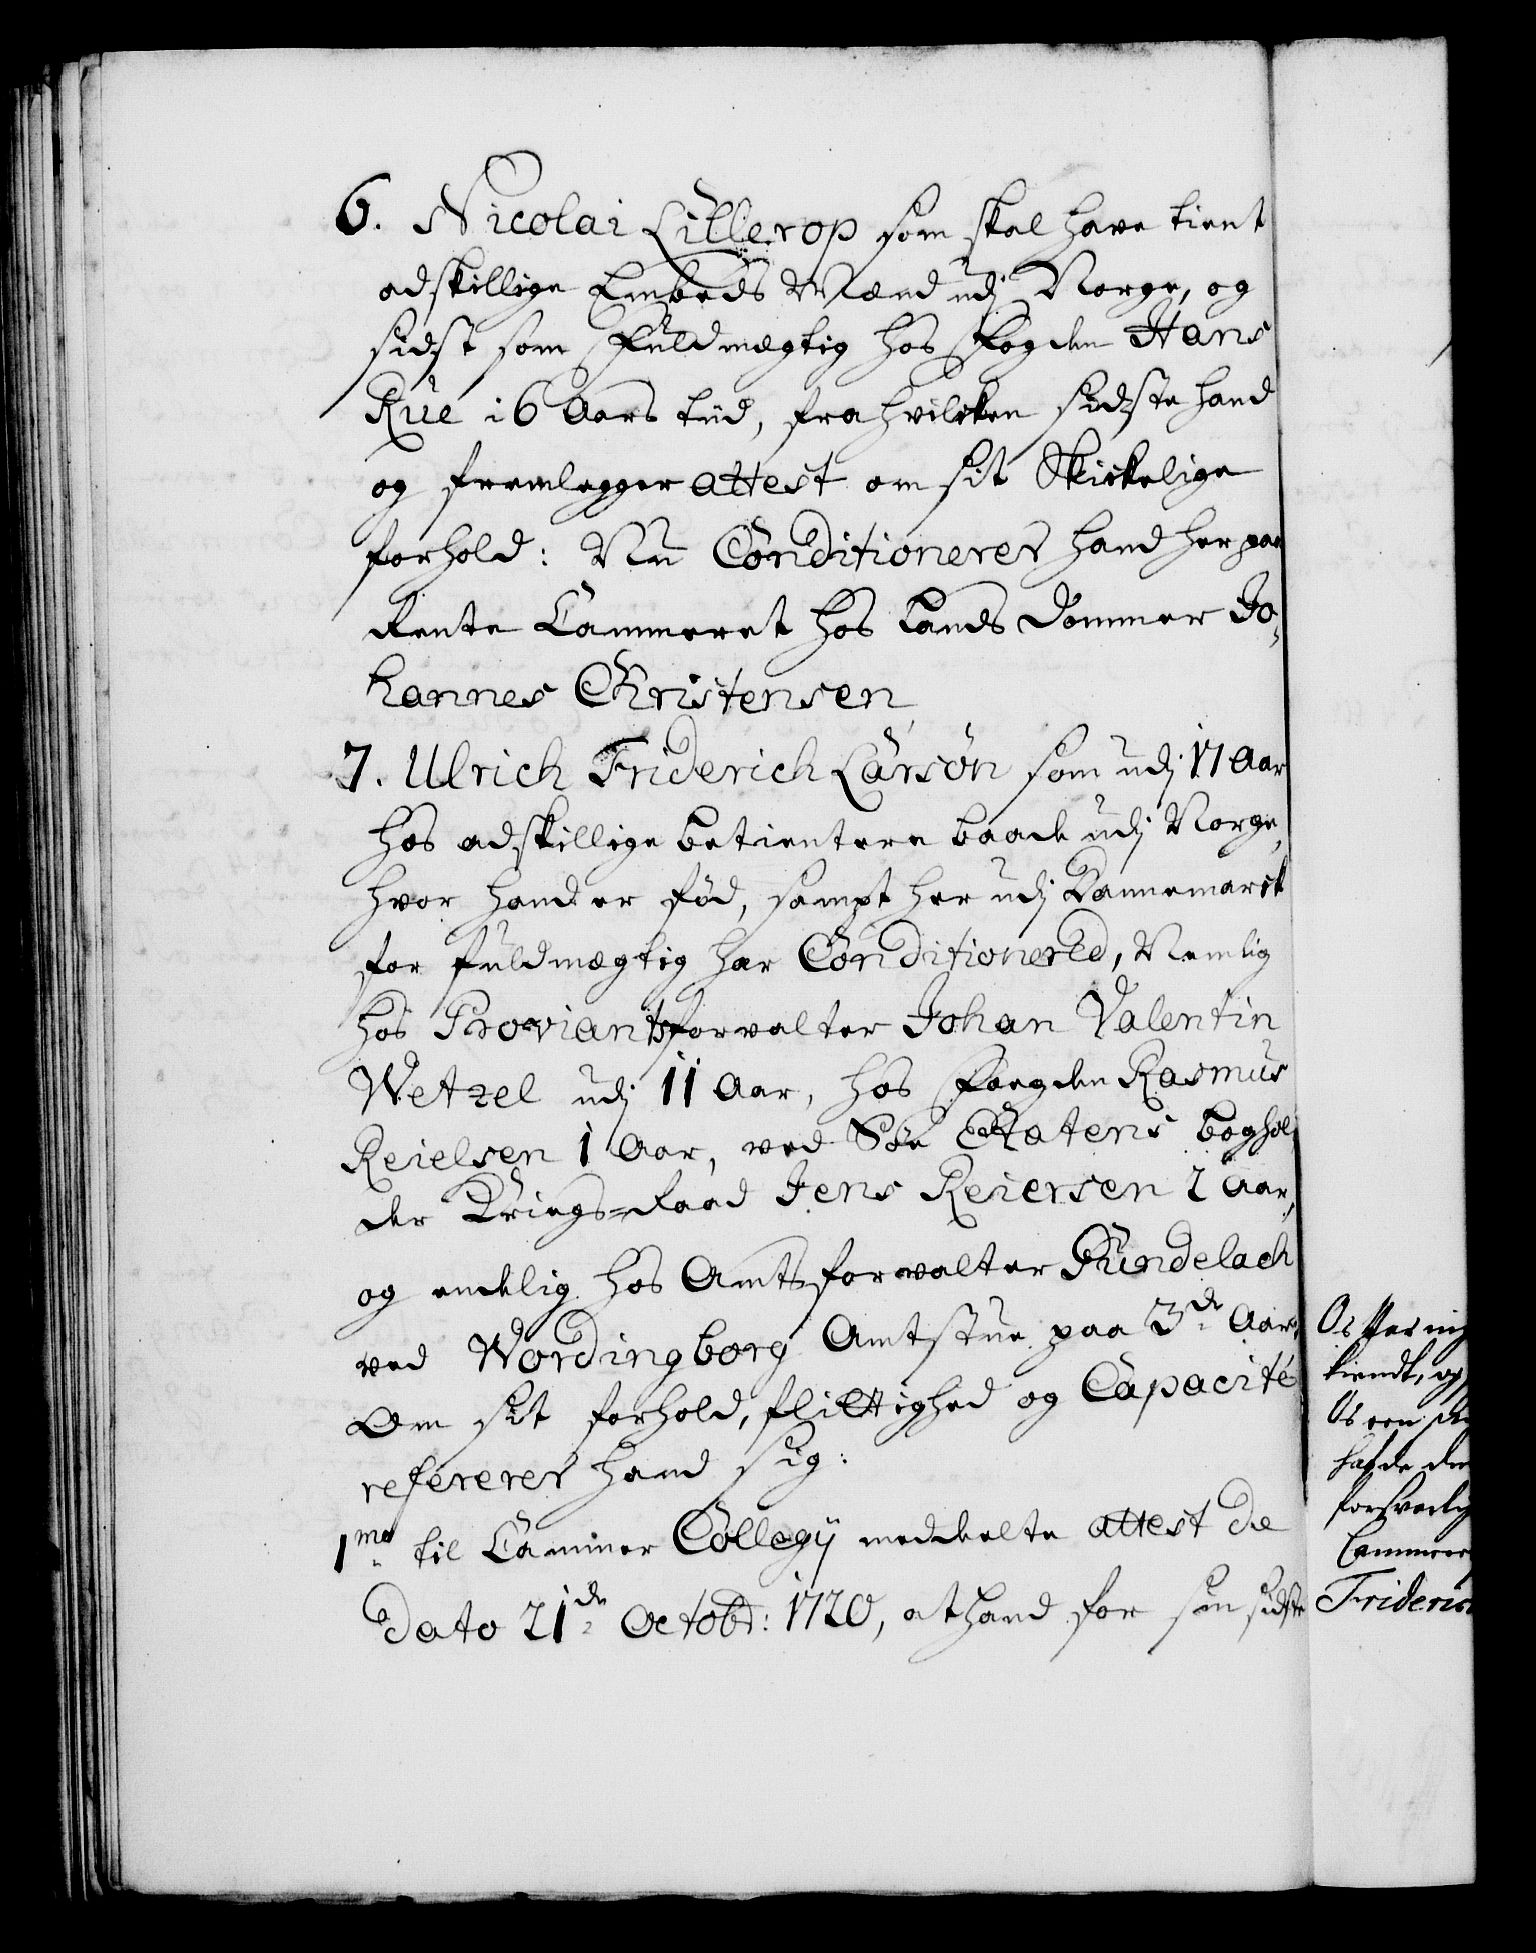 6. Nicolai Lillerop som skal have tient
adskillige Embeds Mænd udj Norge, og
sidst som Fuldmægtig hos Fogden Hans
Rue i 6 Aars tiid, fra hvilcken sidste hand
og fremlegger attest om sit Skickelige
forhold: Nu Conditionerer hand her paa
Rente Cammeret hos Lands Dommer Jo-
hannes Christensen,
7. Ulrich Friderich Larsøn som udj 17 Aar
hos adskillige betientere baade udj Norge,
hvor hand er fød, sampt her udj Dannemarck
for fuldmægtig har Conditionered, Nemlig
hos Proviantsforvalter Johan Valentin
Wetzel udj 11 Aar, hos Foegden Rasmus
Reielsen 1 Aar, ved Söe Etatens boghol-
der Kriegs-Raad Jens Reiersen 2 Aar,
og endelig hos Amtsforvalter Gundelach
ved Wordingborg Amtstue paa 3de Aar,
Om sit forhold, flittighed og Capacité
refererer hand sig:
1mo til Cammer Collegij meddeelte attest de
Dato 21de Octobr: 1720, at hand for sin sidste
kiendt, og
hafde
forsvarlig
Cammer
Frideric